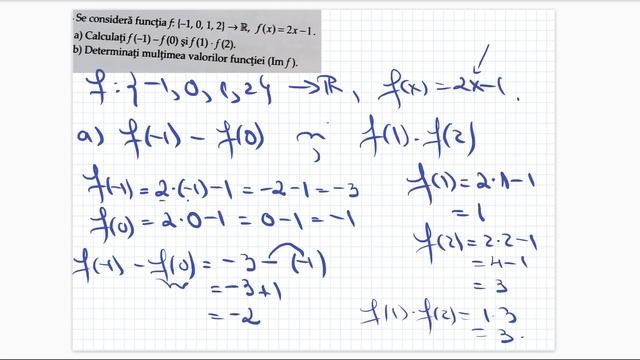 Se consideră funcția f: {−1, 0, 1, 2} → ℝ, f(x) = 2x − 1.
a) Calculați f(−1) − f(0) și f(1) · f(2).
b) Determinați mulțimea valorilor funcției (Im f).
f : {−1, 0, 1, 2} → ℝ, f(x) = 2x−1.
a) f(−1) − f(0) și f(1) · f(2)
f(−1) = 2·(−1)−1 = −2−1 = −3
f(0) = 2·0−1 = 0−1 = −1
f(−1) − f(0) = −3 − (−1)
= −3+1
= −2
f(1) = 2·1−1
= 1
f(2) = 2·2−1
= 4−1
= 3
f(1) · f(2) = 1·3
= 3.